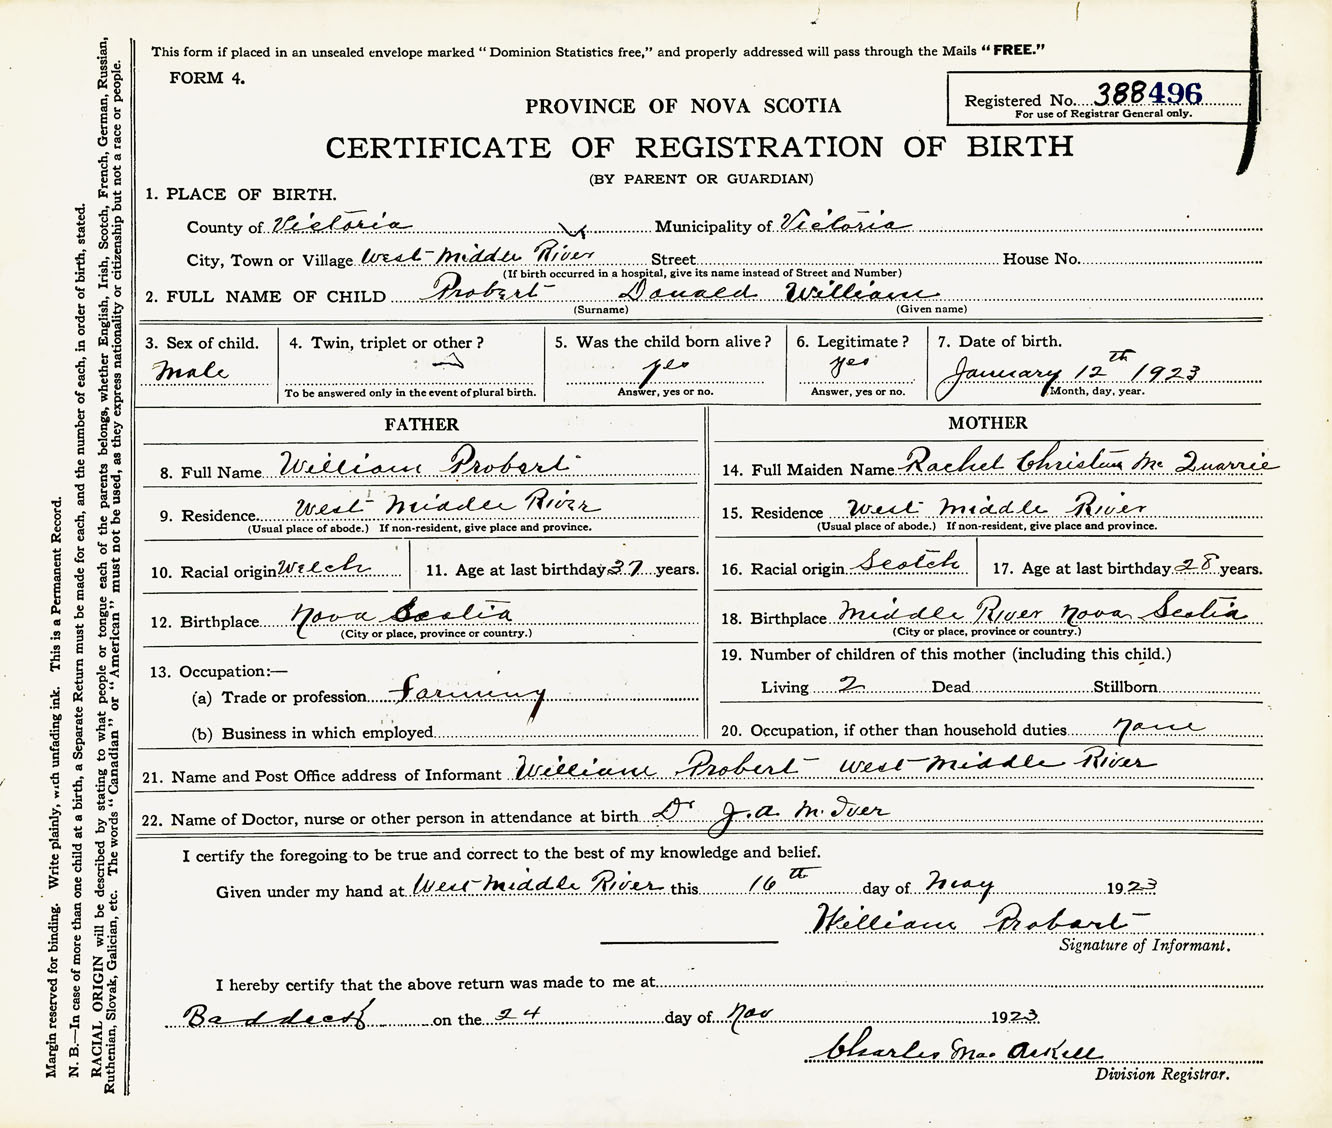 This form if placed in an unsealed envelope marked “Dominion Statistics free,” and properly addressed will pass through the Mails “FREE.”
FORM 4.
Registered No. 388496
For use of Registrar General only.
PROVINCE OF NOVA SCOTIA
CERTIFICATE OF REGISTRATION OF BIRTH
(BY PARENT OR GUARDIAN)
1. PLACE OF BIRTH.
County of Victoria Municipality of Victoria
City, Town or Village West Middle River Street House No.
(If birth occurred in a hospital, give its name instead of Street and Number)
2. FULL NAME OF CHILD Probert Donald William
(Surname) (Given name)
3. Sex of child. 4. Twin, triplet or other? 5. Was the child born alive? 6. Legitimate? 7. Date of birth.
Male yes yes January 12th 1923
To be answered only in the event of plural birth. Answer, yes or no. Answer, yes or no. Month, day, year.
FATHER
8. Full Name William Probert
9. Residence West Middle River
(Usual place of abode.) If non-resident, give place and province.
10. Racial origin Welch 11. Age at last birthday 37 years.
12. Birthplace Nova Scotia
(City or place, province or country.)
13. Occupation:—
(a) Trade or profession Farming
(b) Business in which employed
MOTHER
14. Full Maiden Name Rachel Christina Mc Quarrie
15. Residence West Middle River
(Usual place of abode.) If non-resident, give place and province.
16. Racial origin Scotch 17. Age at last birthday 28 years.
18. Birthplace Middle River Nova Scotia
(City or place, province or country.)
19. Number of children of this mother (including this child.)
Living 2 Dead Stillborn
20. Occupation, if other than household duties none
21. Name and Post Office address of Informant William Probert West Middle River
22. Name of Doctor, nurse or other person in attendance at birth Dr J. A. McIver
I certify the foregoing to be true and correct to the best of my knowledge and belief.
Given under my hand at West Middle River this 16th day of May 1923
William Probart
Signature of Informant.
I hereby certify that the above return was made to me at
Baddeck on the 24 day of Nov 1923
Charles MacAskill
Division Registrar.
Margin reserved for binding. Write plainly, with unfading ink. This is a Permanent Record.
N. B.—In case of more than one child at a birth, a Separate Return must be made for each, and the number of each, in order of birth, stated.
RACIAL ORIGIN will be described by stating to what people or tongue each of the parents belongs, whether English, Irish, Scotch, French, German, Russian,
Ruthenian, Slovak, Galician, etc. The words “Canadian” or “American” must not be used, as they express nationality or citizenship but not a race or people.